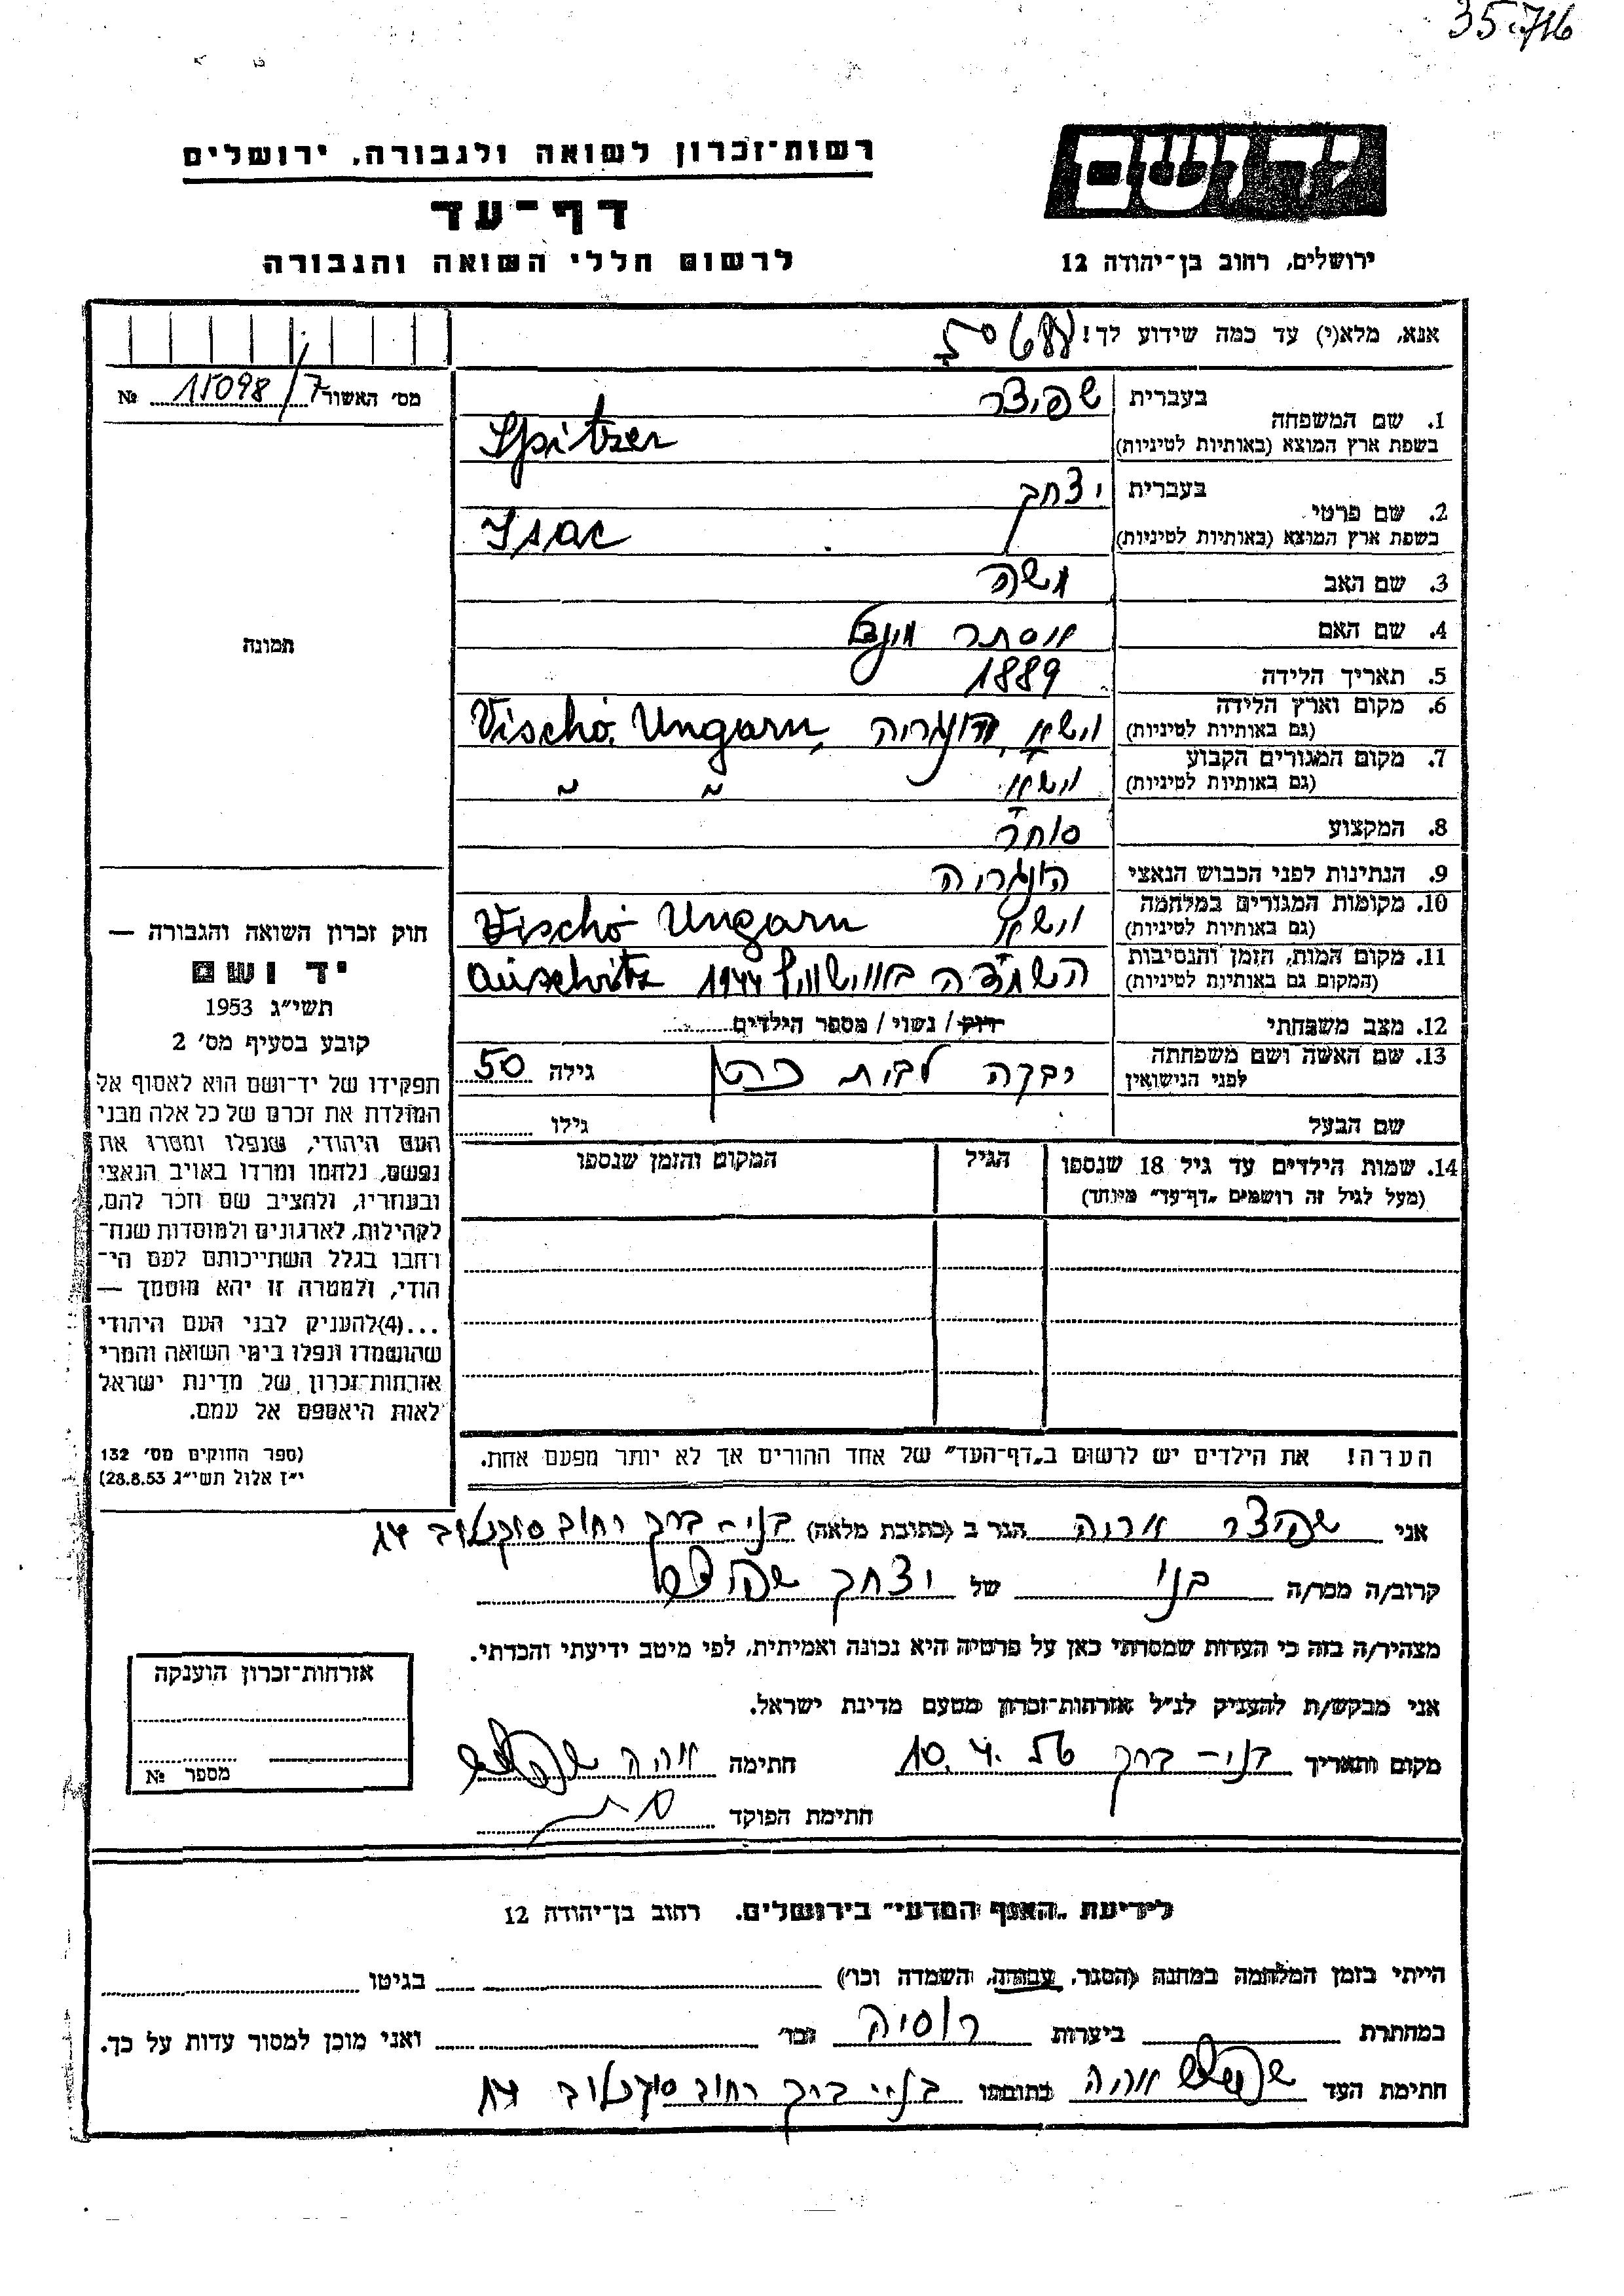 35.716
רשות־זכרון לשואה ולגבורה, ירושלים
יד ושם
דף־עד
לרשום חללי השואה והגבורה
ירושלים, רחוב בן־יהודה 12
אנא, מלא(י) עד כמה שידוע לך!
מס׳ האשור № 15098/7
1. שם המשפחה
בעברית שפיצר
בשפת ארץ המוצא (באותיות לטיניות) Spitzer
2. שם פרטי
בעברית יצחק
בשפת ארץ המוצא (באותיות לטיניות) Isac
3. שם האב משה
4. שם האם אסתר
5. תאריך הלידה 1889
6. מקום וארץ הלידה (גם באותיות לטיניות) הונגריה, Vischó. Ungarn
7. מקום המגורים הקבוע (גם באותיות לטיניות) " "
8. המקצוע סוחר
9. הנתינות לפני הכבוש הנאצי הונגריה
10. מקומות המגורים במלחמה (גם באותיות לטיניות) Vischó Ungarn
11. מקום המות, הזמן והנסיבות (המקום גם באותיות לטיניות) באושוויץ 1944 Auschvitz
12. מצב משפחתי רווק / נשוי / מספר הילדים
13. שם האשה ושם משפחתה לפני הנישואין רבקה לבית גילה 50
שם הבעל גילו
14. שמות הילדים עד גיל 18 שנספו הגיל המקום והזמן שנספו
(מעל לגיל זה רושמים „דף־עד” מיוחד)
הערה! את הילדים יש לרשום ב„דף־העד” של אחד ההורים אך לא יותר מפעם אחת.
תמונה
חוק זכרון השואה והגבורה —
יד ושם
תשי״ג 1953
קובע בסעיף מס׳ 2
תפקידו של יד־ושם הוא לאסוף אל
המולדת את זכרם של כל אלה מבני
העם היהודי, שנפלו ומסרו את
נפשם, נלחמו ומרדו באויב הנאצי
ובעוזריו, ולהציב שם וזכר להם,
לקהילות, לארגונים ולמוסדות שנח־
רבו בגלל השתייכותם לעם הי־
הודי, ולמטרה זו יהא מוסמך —
...(4) להעניק לבני העם היהודי
שהושמדו ונפלו בימי השואה והמרי
אזרחות־זכרון של מדינת ישראל
לאות היאספם אל עמם.
(ספר החוקים מס׳ 132
י״ז אלול תשי״ג 28.8.53)
אני שפיצר אריה הגר ב (כתובת מלאה) בני-ברק רחוב סוקולוב
קרוב/ה מכר/ה בנו של יצחק שפיצר
מצהיר/ה בזה כי העדות שמסרתי כאן על פרטיה היא נכונה ואמיתית, לפי מיטב ידיעתי והכרתי.
אני מבקש/ת להעניק לנ״ל אזרחות־זכרון מטעם מדינת ישראל.
מקום ותאריך בני-ברק 10.4.56 חתימה אריה שפיצר
חתימת הפוקד
אזרחות־זכרון הוענקה
מספר №
לידיעת „האגף המדעי” בירושלים. רחוב בן־יהודה 12
הייתי בזמן המלחמה במחנה (הסגר, עבודה, השמדה וכו׳) בגיטו
במחתרת ביערות רוסיה וכו׳ ואני מוכן למסור עדות על כך.
חתימת העד שפיצר אריה כתובתו בני ברק רחוב סוקולוב